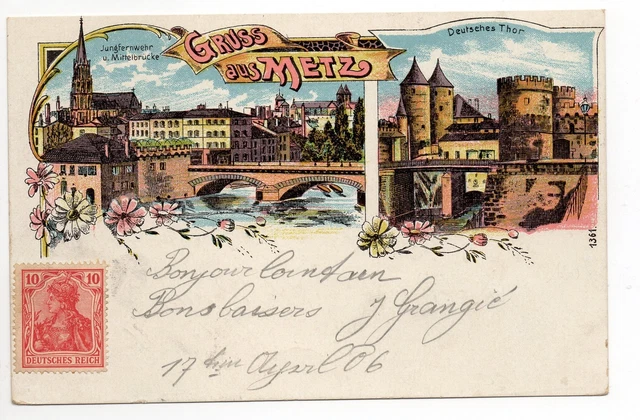 Jungfernwehr
u. Mittelbrücke
GRUSS
aus METZ
Deutsches Thor
1361
Bonjour lointain
Bons baisers J Grangié
17 April 06
10 10
DEUTSCHES REICH